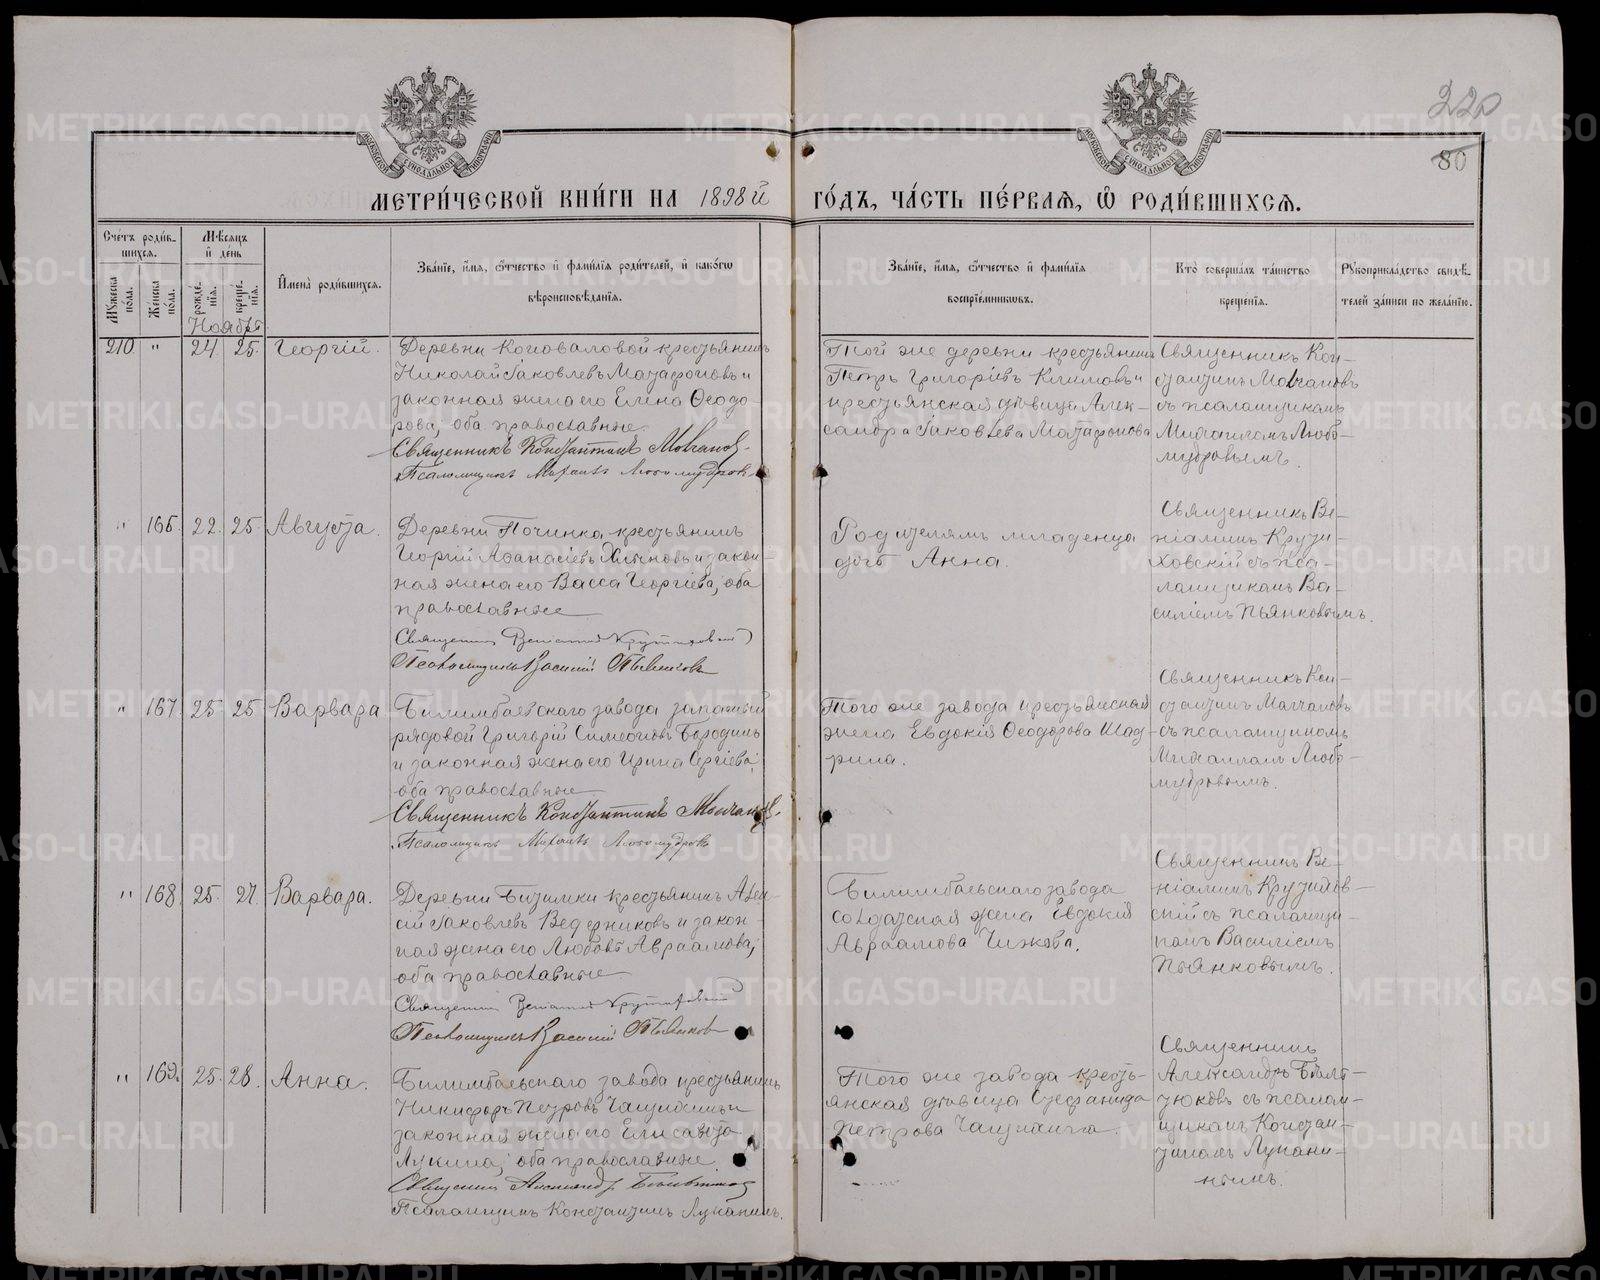 220
80
МЕТРИ́ЧЕСКОЙ КНИ́ГИ НА 1898й ГО́ДЪ, ЧА́СТЬ ПЕ́РВАѦ, Ѡ РОДИ́ВШИХСѦ.
Сче́тъ роди́в-
шихся.
Мѣ́сяцъ
и де́нь
Мꙋжеска
по́ла.
Же́нска
по́ла.
рожде́-
нїѧ.
креще́-
нїѧ.
Имена̀ роди́вшихся.
Зва́нїе, и́мя, ѻ́тчество и фами́лїя роди́телей, и како́гѡ
вѣроисповѣ́данїя.
Зва́нїе, и́мя, ѻ́тчество и фами́лїя
воспрїе́мниковъ.
Кто̀ соверша́лъ та́инство
креще́нїя.
Рꙋкоприкла́дство свидѣ́-
телей за́писи по жела́нїю.
Ноябрь
210. " 24. 25. Георгій.
Деревни Коноваловой крестьянинъ
Николай Іаковлевъ Матафоновъ и
законная жена его Елена Ѳеодо-
рова, оба православные
Священникъ Константинъ Молчановъ
Псаломщикъ Михаилъ Любомудровъ
Той же деревни крестьянинъ
Петръ Григоріевъ Климовъ и
крестьянская дѣвица Алек-
сандра Іаковлева Матафонова
Священникъ Кон-
стантинъ Молчановъ
съ псаломщикомъ
Михаиломъ Любо-
мудровымъ.
" 165. 22. 25. Августа.
Деревни Починка крестьянинъ
Георгій Аѳанасіевъ и закон
ная жена его Васса Георгіева, оба
православные
Священникъ Веніаминъ Крутиховскій
Псаломщикъ Василій Пьянковъ
Родителямъ младенца
дочь Анна.
Священникъ Ве-
ніаминъ Крути-
ховскій съ пса-
ломщикомъ Ва-
силіемъ Пьянковымъ.
" 167. 25. 25. Варвара
Билимбаевскаго завода запасный
рядовой Григорій Симеоновъ Бородинъ
и законная жена его Ирина Сергіева,
оба православные
Священникъ Константинъ Молчановъ.
Псаломщикъ Михаилъ Любомудровъ
Того же завода крестьянская
жена Евдокія Ѳеодорова Шад-
рина.
Священникъ Кон-
стантинъ Молчановъ
съ псаломщикомъ
Михаиломъ Любо-
мудровымъ.
" 168. 25. 27. Варвара.
Деревни Бизимки крестьянинъ Алек-
сій Іаковлевъ Ведерниковъ и закон-
ная жена его Любовь Авраамова,
оба православные
Священникъ Веніаминъ Крутиховскій
Псаломщикъ Василій Пьянковъ
Билимбаевскаго завода
солдатская жена Евдокія
Авраамова Чижова.
Священникъ Ве-
ніаминъ Крутихов-
скій съ псаломщи-
комъ Василіемъ
Пьянковымъ.
" 169. 25. 28. Анна.
Билимбаевскаго завода крестьянинъ
Никифоръ Петровъ и
законная жена его Елисавета
Лукина, оба православные.
Священникъ Александръ
Псаломщикъ Константинъ Лупанинъ.
Того же завода кресть-
янская дѣвица Стефанида
Петрова
Священникъ
Александръ
съ псалом-
щикомъ Констан-
тиномъ Лупани-
нымъ.
METRIKI.GASO-URAL.RU